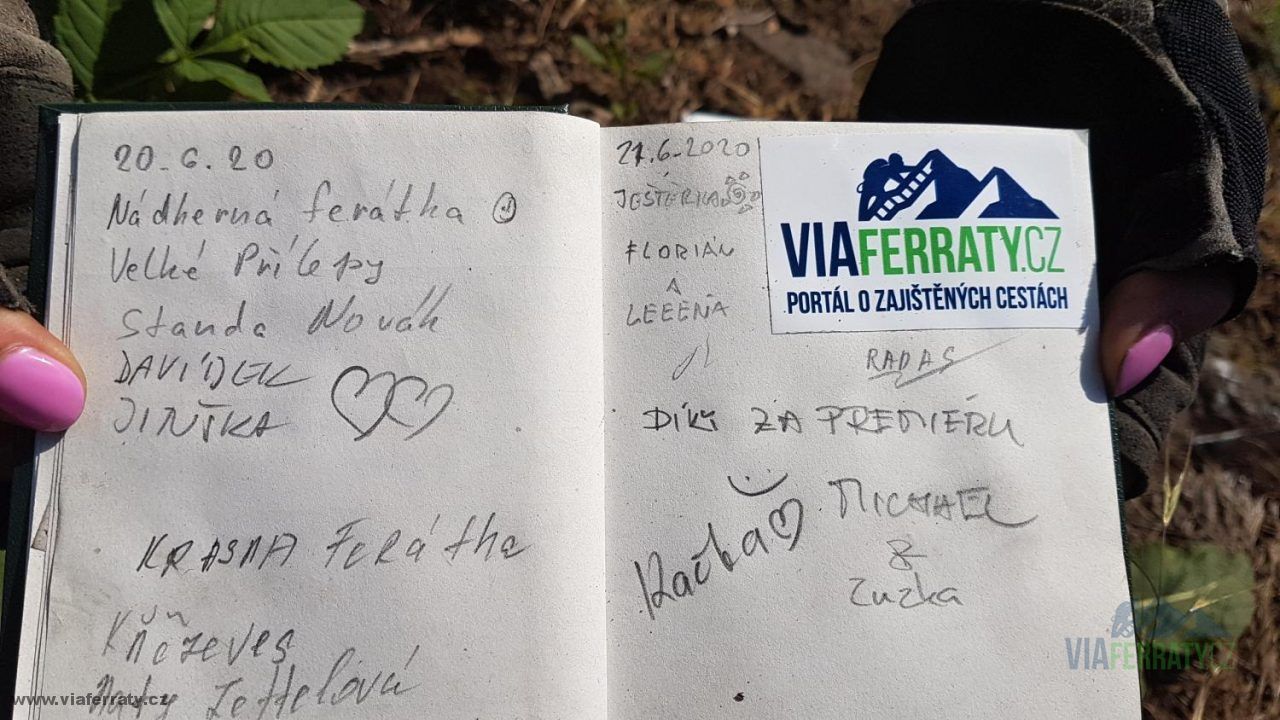 20.6.20
Nádherná ferátka
Velké Přílepy
Standa Novák
DAVÍDEK
JINŤKA
KRASNA Ferátka
Kňěževes
21.6.2020
JEŠTĚRKA
FLORIÁN
A
LEEEŇA
VIAFERRATY.CZ
PORTÁL O ZAJIŠTĚNÝCH CESTÁCH
RADAS
DÍKY ZA PREMIÉRU
Kačka
MICHAEL
&
Zuzka
www.viaferraty.cz
VIAFERRATY.CZ